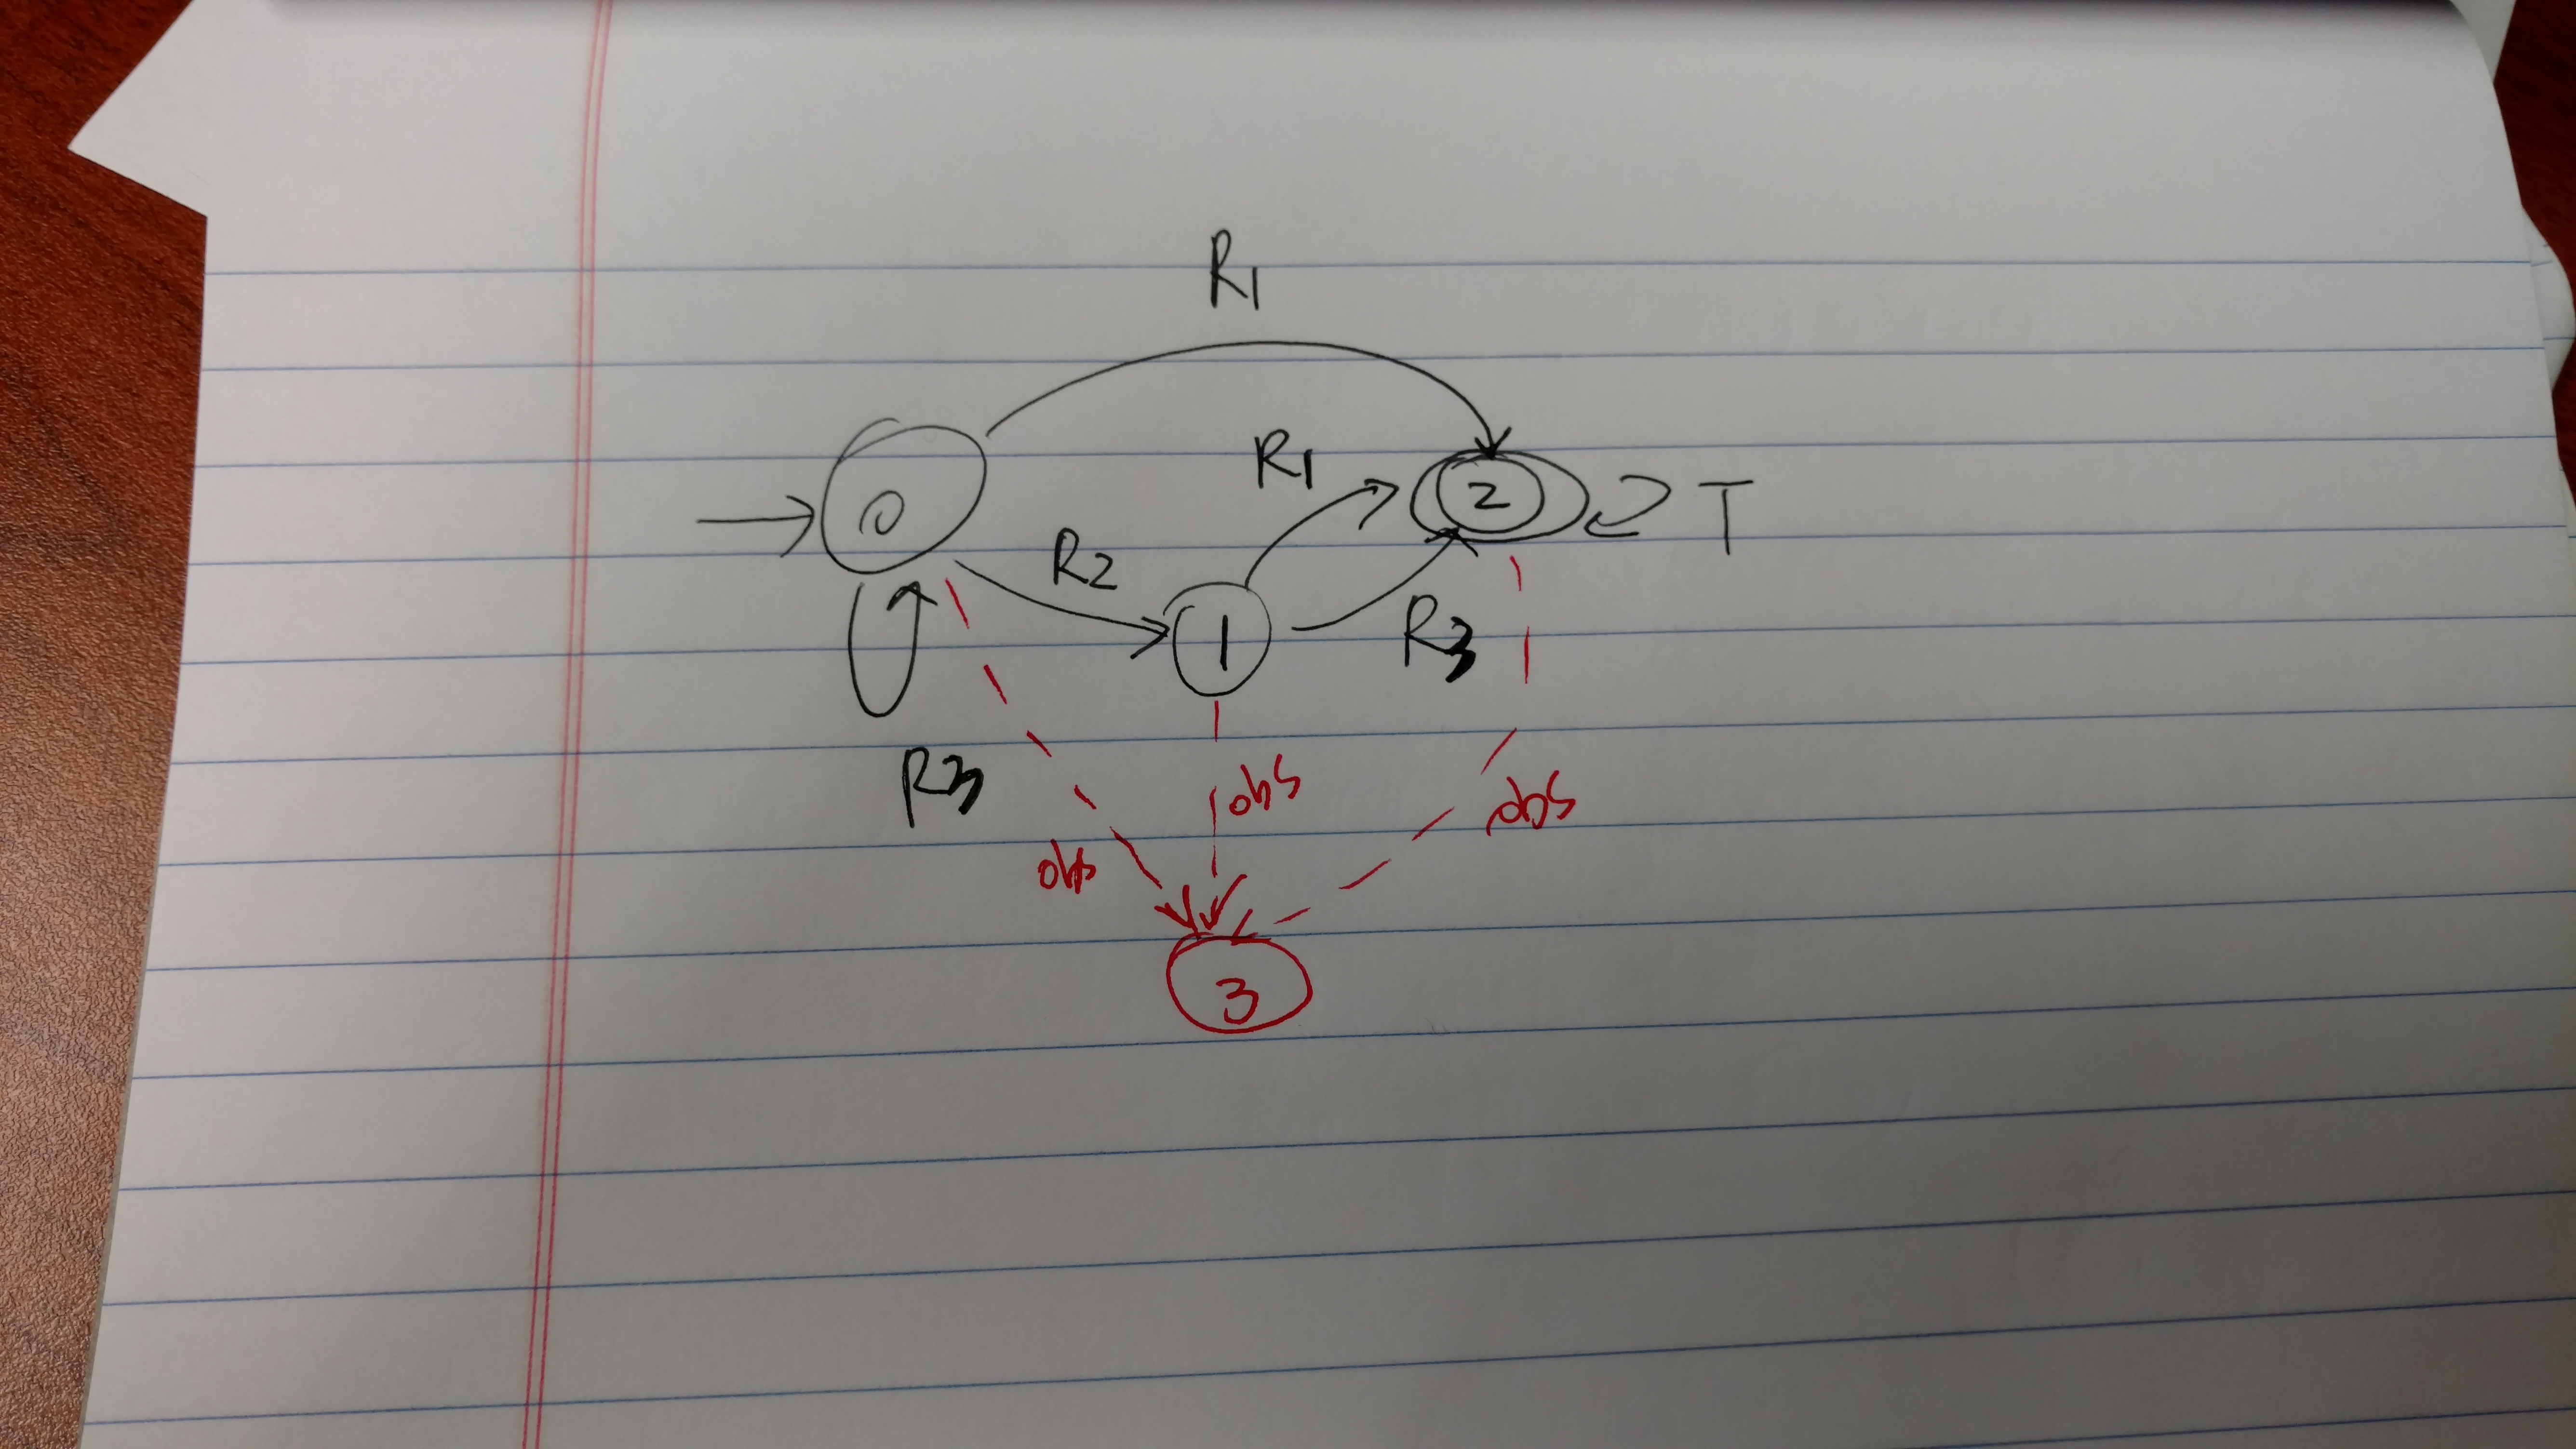 R1
R1
0
2
T
R2
1
R3
R3
obs
obs
obs
3